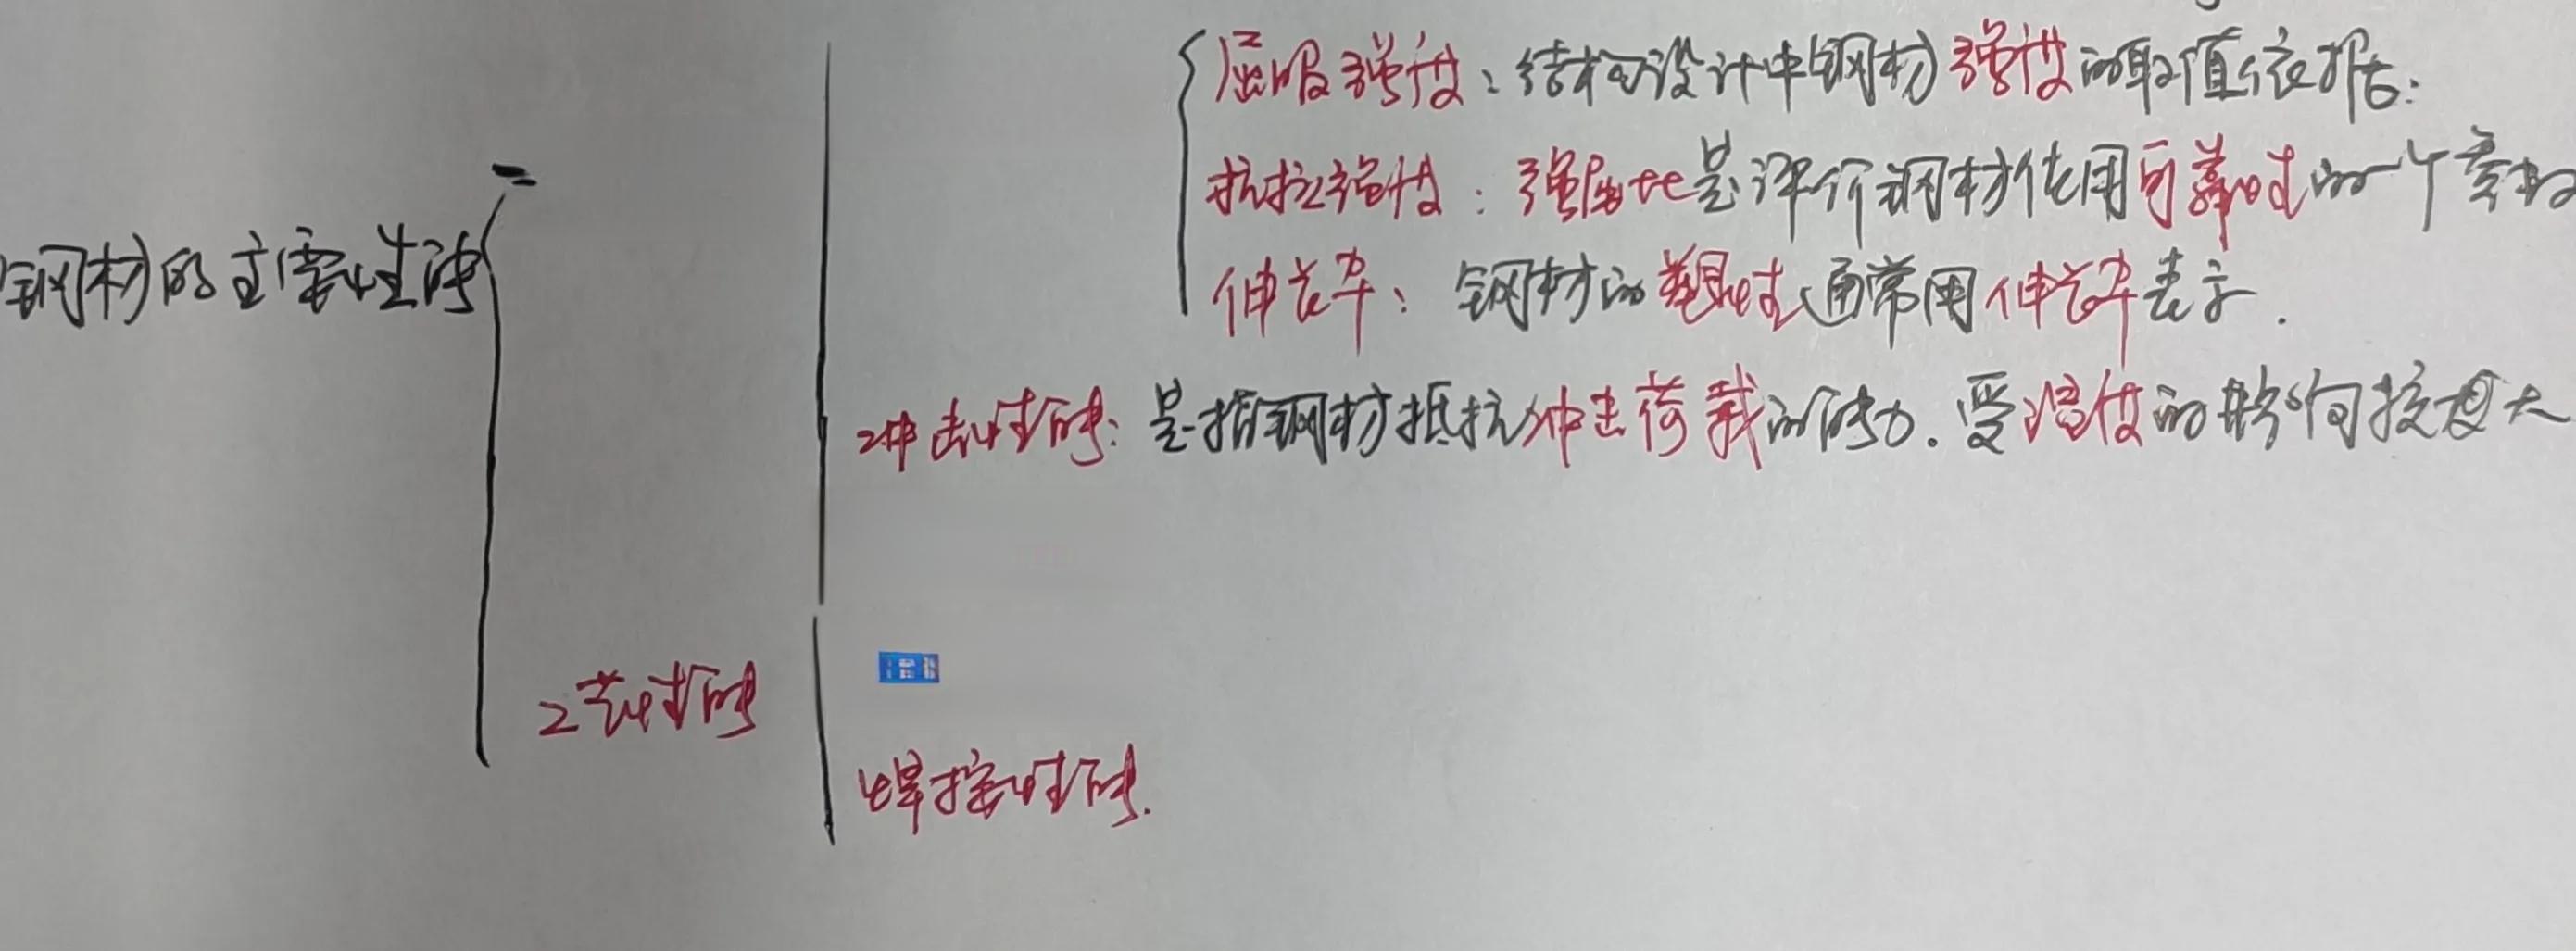 屈服强度：结构设计中钢材强度的取值依据；
抗拉强度：强屈比是评价钢材使用可靠性的一个参数
钢材的主要性能
伸长率：钢材的塑性通常用伸长率表示．
冲击性能：是指钢材抵抗冲击荷载的能力．受温度的影响较大
工艺性能
焊接性能．